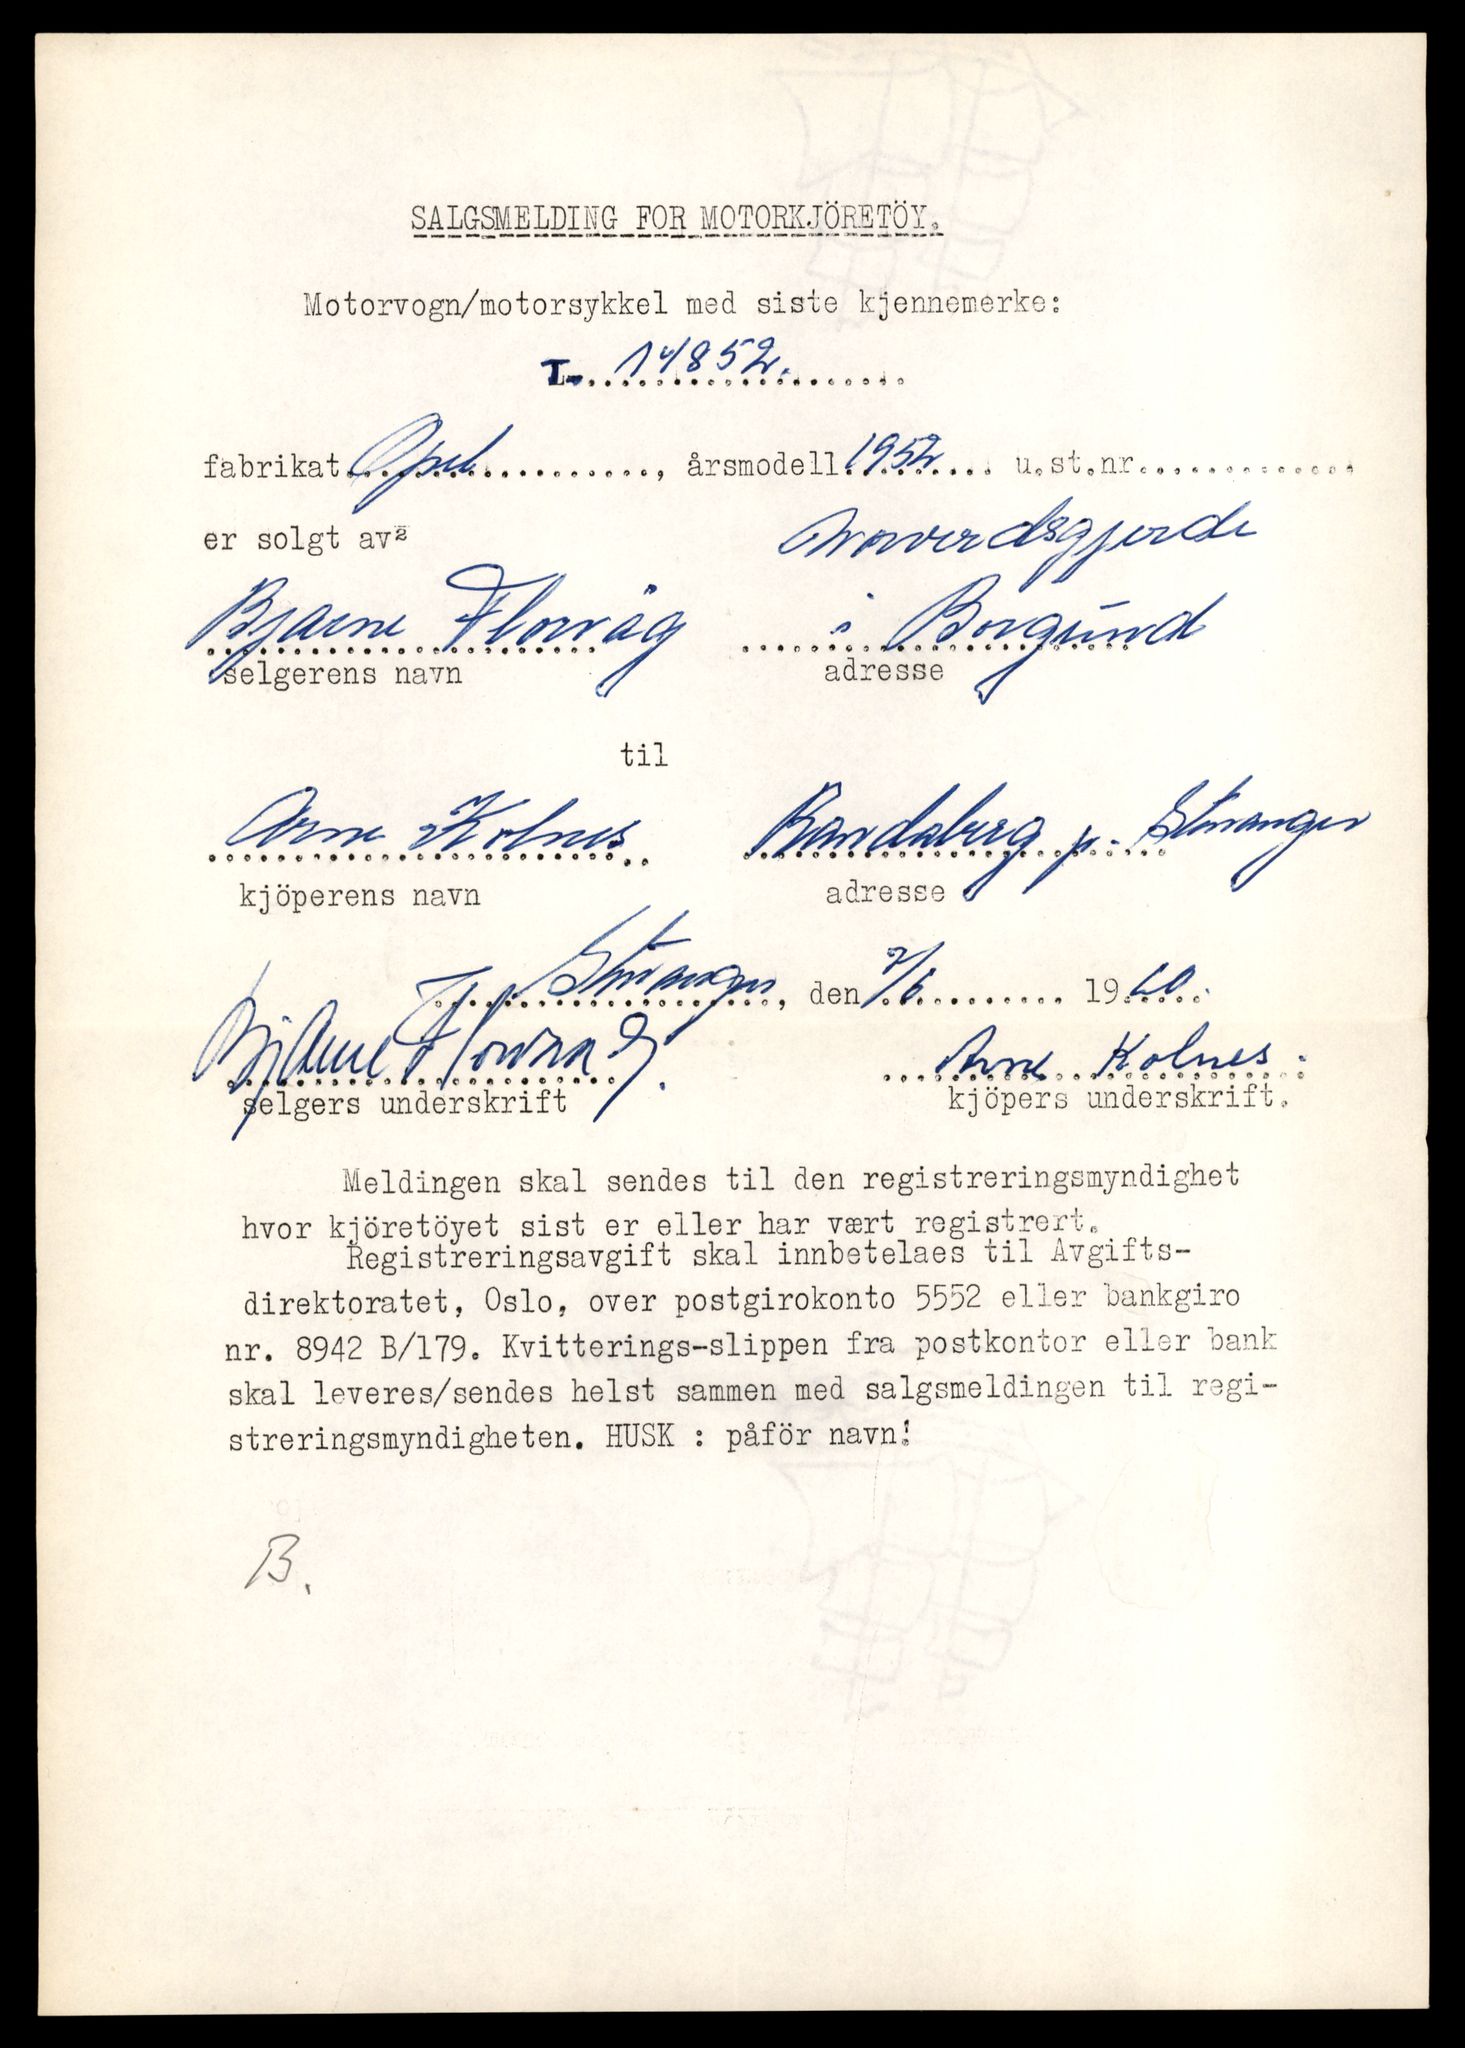 SALGSMELDING FOR MOTORKJÖRETÖY.
Motorvogn/motorsykkel med siste kjennemerke:
L-. 14852.
fabrikat Opel, årsmodell 1952 u.st.nr.
er solgt av
Bjarne Florvåg i Borgund
selgerens navn adresse
til
Arne Kolnes Randaberg p. Stavanger
kjöperens navn adresse
Stavanger, den 7/6 1960.
Bjarne Florvåg. Arne Kolnes.
selgers underskrift kjöpers underskrift.
Meldingen skal sendes til den registreringsmyndighet
hvor kjöretöyet sist er eller har vært registrert.
Registreringsavgift skal innbetelaes til Avgifts-
direktoratet, Oslo, over postgirokonto 5552 eller bankgiro
nr. 8942 B/179. Kvitterings-slippen fra postkontor eller bank
skal leveres/sendes helst sammen med salgsmeldingen til regi-
streringsmyndigheten. HUSK : påför navn!
B.